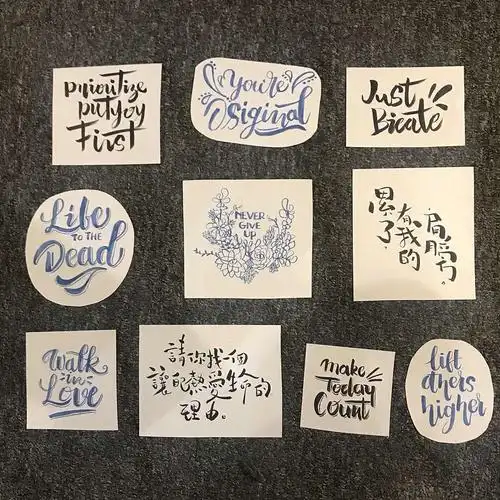 prioritize
putyoy
First
You're
Original
Just
Life
TO THE
Dead
NEVER
GIVE
UP
累了
有我的
肩膀。
Walk
in
Love
請你找一個
讓自己熱愛生命的
理由。
Make
Today
Count
lift
others
higher